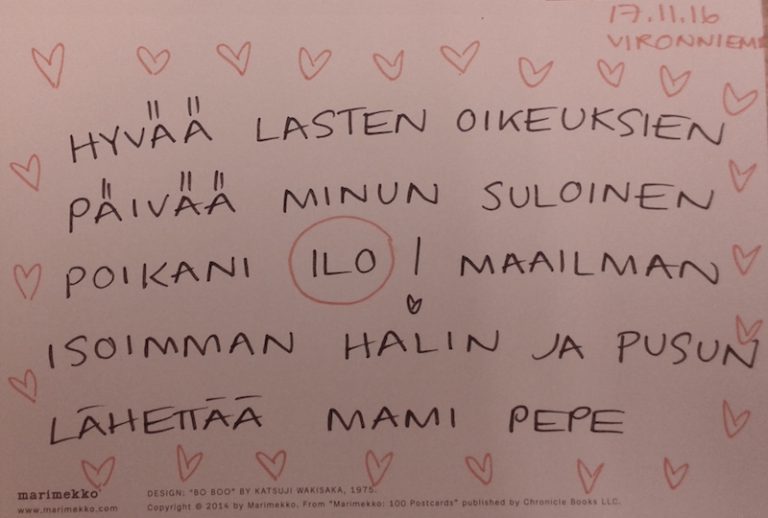 17.11.16
VIRONNIEM
HYVÄÄ LASTEN OIKEUKSIEN
PÄIVÄÄ MINUN SULOINEN
POIKANI ILO! MAAILMAN
ISOIMMAN HALIN JA PUSUN
LÄHETTÄÄ MAMI PEPE
marimekko
www.marimekko.com
DESIGN: "BO BOO" BY KATSUJI WAKISAKA, 1975.
Copyright © 2014 by Marimekko. From "Marimekko: 100 Postcards" published by Chronicle Books LLC.